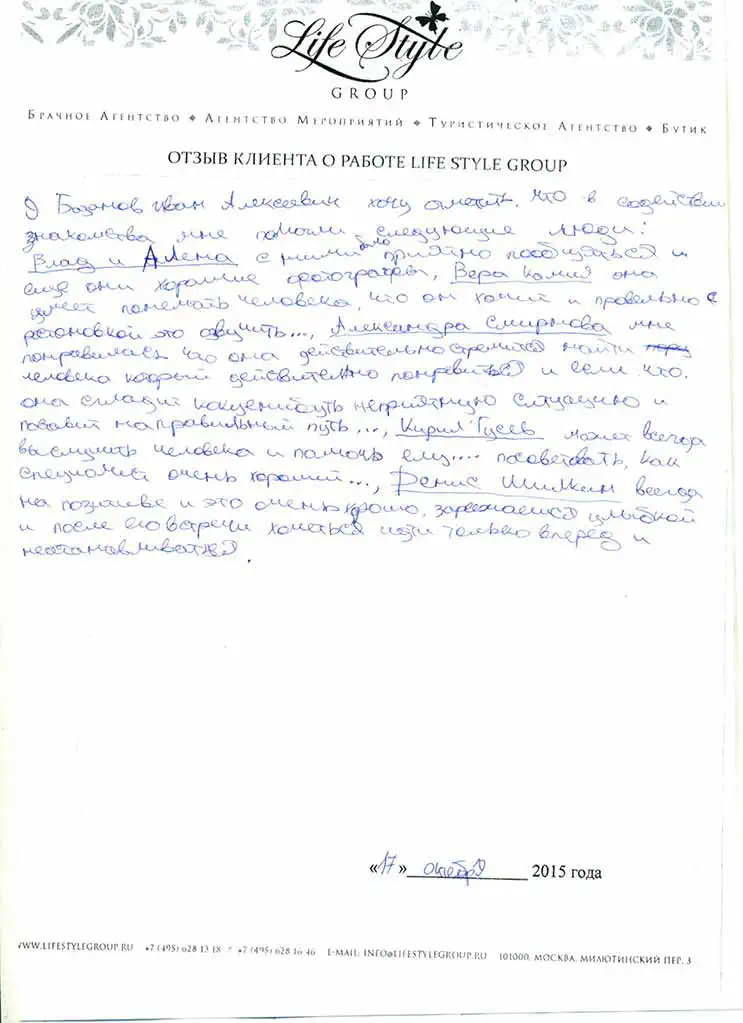 Life Style
GROUP
Брачное Агентство ◆ Агентство Мероприятий ◆ Туристическое Агентство ◆ Бутик
ОТЗЫВ КЛИЕНТА О РАБОТЕ LIFE STYLE GROUP
Я Базанов Иван Алексеевич хочу отметить, что в содействии
знакомства мне помогли следующие люди:
Влад и Алена с ними было приятно пообщаться и
еще они хорошие фотографы, Вера она
умеет понемать человека, что он хочит и провельно с
ростоновкой это озвучить..., Александра Смирнова мне
понравилась что она действительно стремится найти
человека который действительно понравиться и если что.
она сгладит какуенибуть неприятную ситуацию и
поставит на правильный путь..., Кирил Гусев может всегда
выслушить человека и помочь ему.... посоветовать, как
специалист очень хороший..., Денис Шилкин всегда
на позитиве и это очень хорошо, заряжаешся улыбкой
и после его встречи хочеться идти только вперед и
неостанавливаться.
«17» октября 2015 года
WWW.LIFESTYLEGROUP.RU +7 (495) 628 13 18 / +7 (495) 628 16 46 E-MAIL: INFO@LIFESTYLEGROUP.RU 101000, МОСКВА, МИЛЮТИНСКИЙ ПЕР. 3